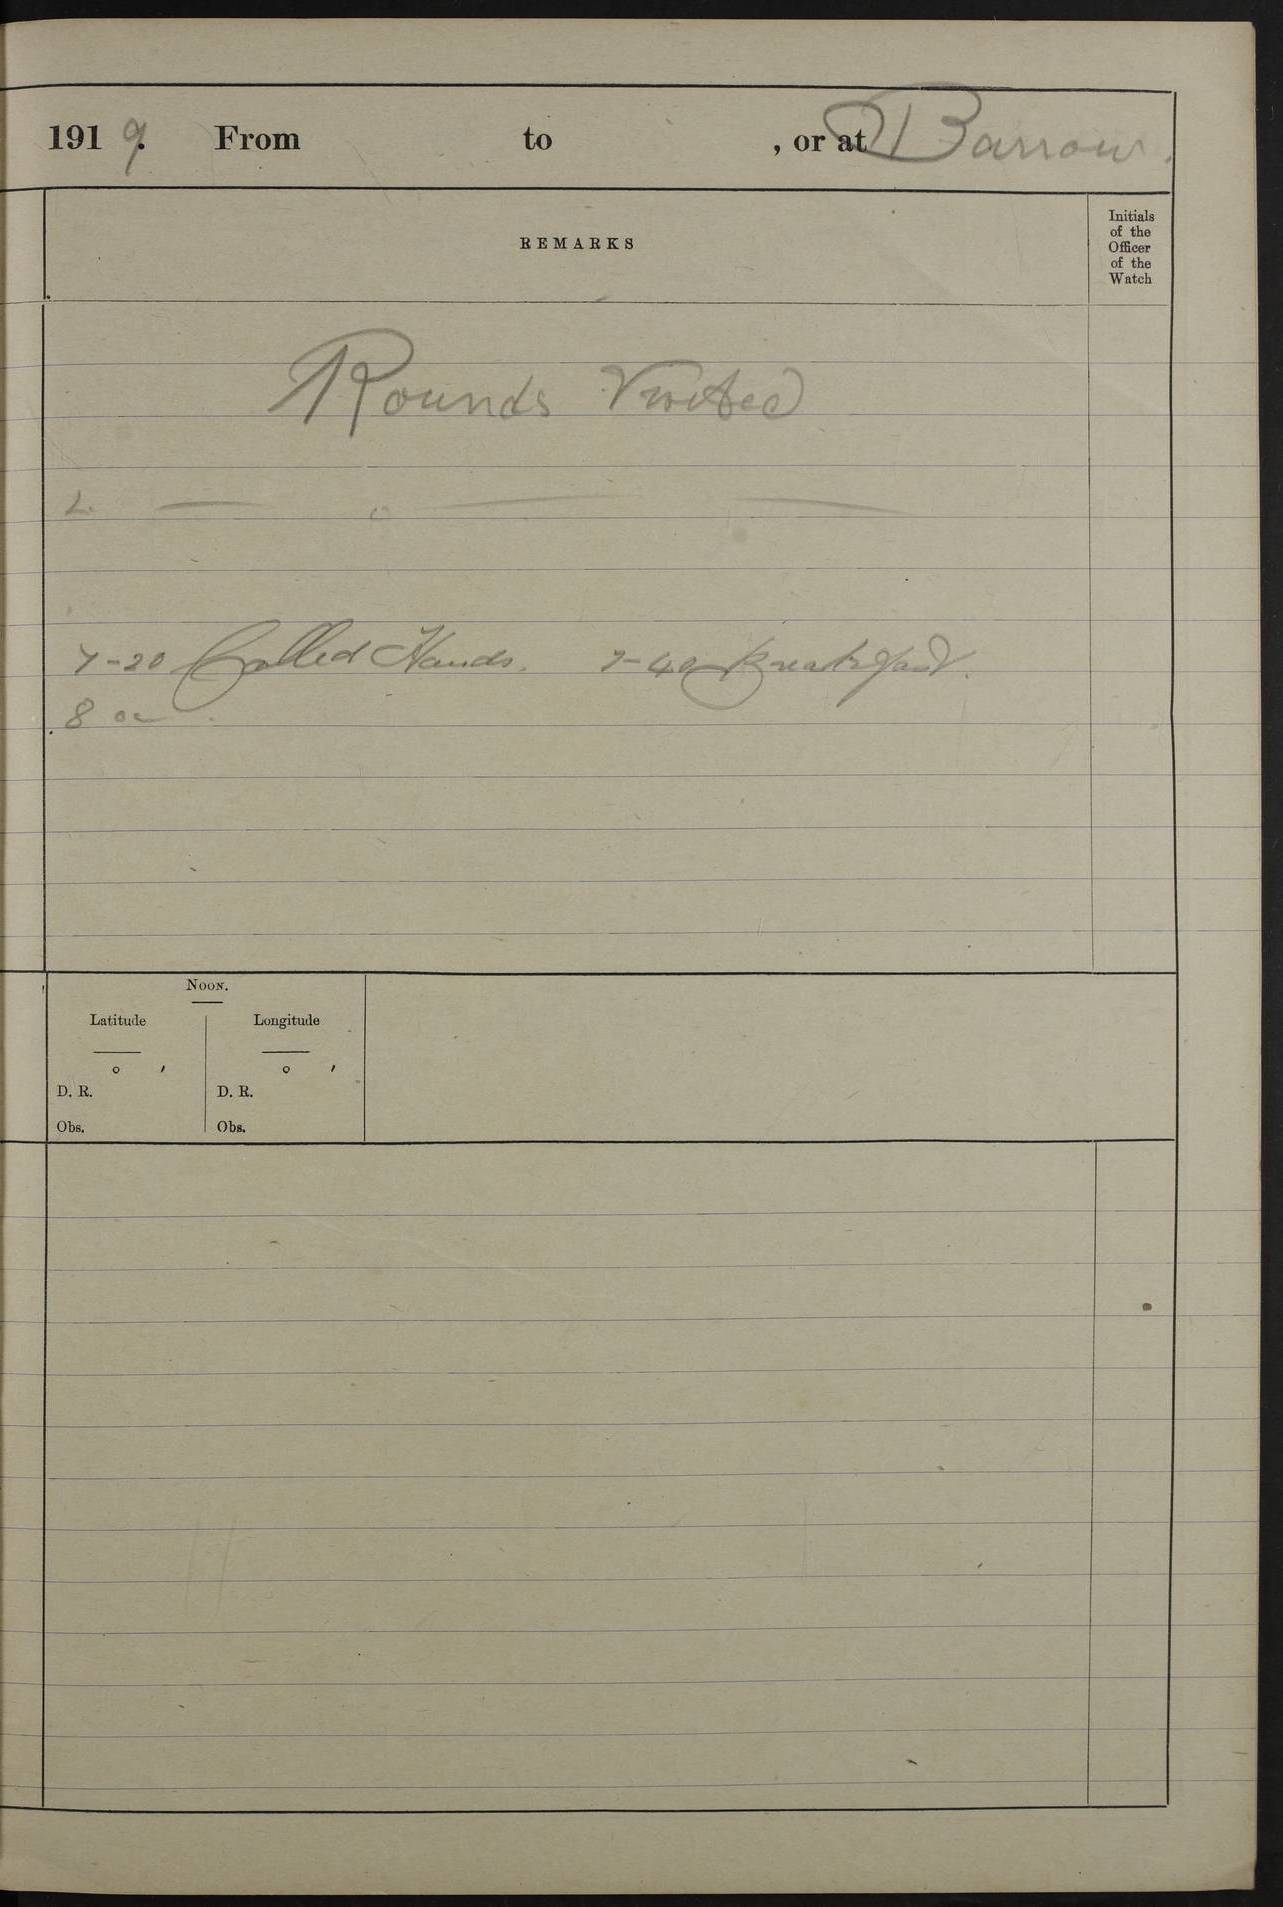 1919. From to , or at Barrow.
REMARKS
Initials of the Officer of the Watch
Rounds Visited
7-20 Called Hands. 7-40 Breakfast.
8
NOON.
Latitude Longitude
° ′ ° ′
D. R. D. R.
Obs. Obs.